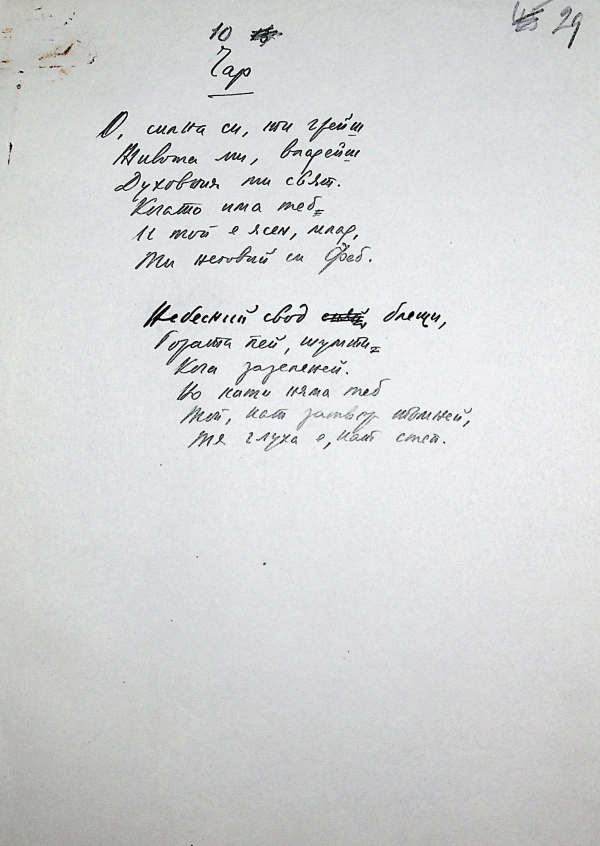 29
10
Чар
О, силна си, ти грейш
Живота ми, владейш
Духовния ми свят.
Когато има теб
И той е ясен, млад,
Ти неговий си Феб.
Небесний свод блещи,
Гората пей, шумти
Кога зазеленей.
Но кати няма теб
Той, кат затвор тъмней,
Тя глуха е, кат степ.